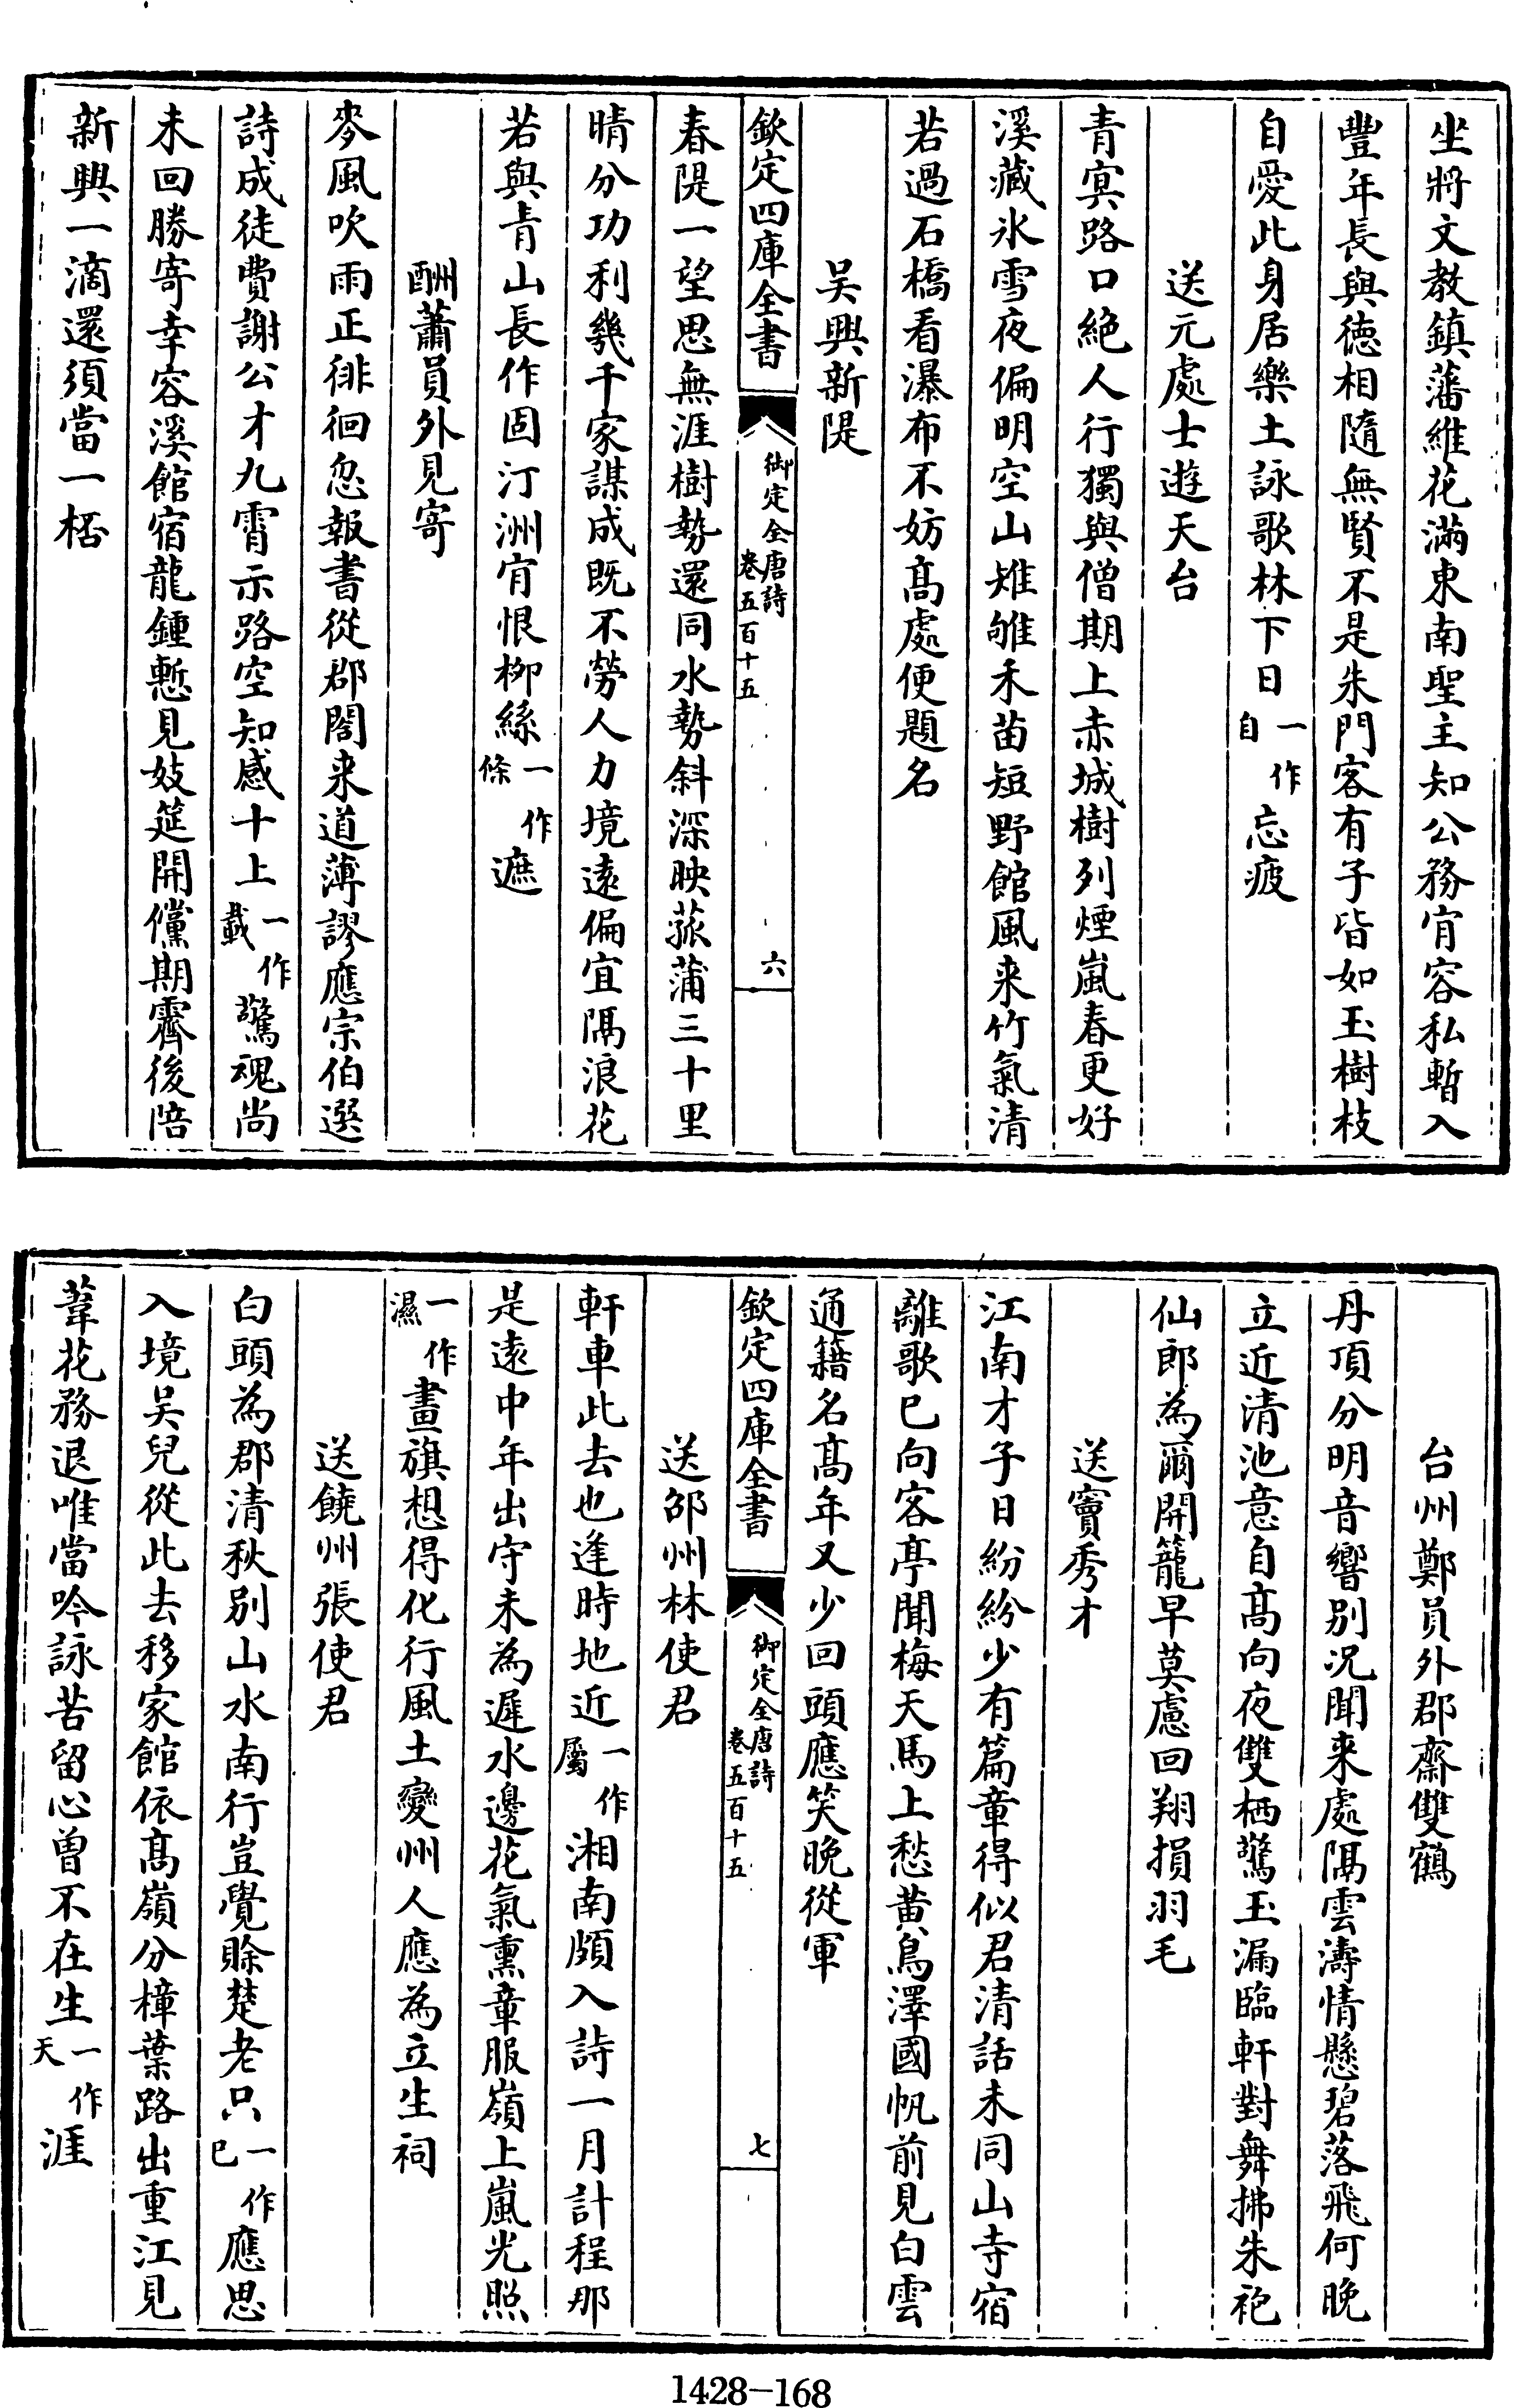 坐將文教鎮藩維花滿東南聖主知公務肯容私暫入
豐年長與德相隨無賢不是朱門客有子皆如玉樹枝
自愛此身居樂土詠歌林下日一作自忘疲
送元處士遊天台
青冥路口絶人行獨與僧期上赤城樹列煙嵐春更好
溪藏氷雪夜偏明空山雉雊禾苗短野館風来竹氣清
若過石橋看瀑布不妨髙處便題名
吴興新隄
欽定四庫全書
御定全唐詩
卷五百十五
六
春隄一望思無涯樹勢還同水勢斜深映菰蒲三十里
晴分功利幾千家謀成既不勞人力境遠偏宜隔浪花
若與青山長作固汀洲肯恨栁絲一作條遮
酬蕭員外見寄
麥風吹雨正徘徊忽報書從郡閣来道薄謬應宗伯選
詩成徒費謝公才九霄示路空知感十上一作載驚魂尚
未回勝寄幸容溪館宿龍鍾慙見妓筵開儻期霽後陪
新興一滴還須當一桮
台州鄭員外郡齋雙鶴
丹頂分明音響别况聞来處隔雲濤情懸碧落飛何晚
立近清池意自髙向夜雙栖驚玉漏臨軒對舞拂朱袍
仙郎為爾開籠早莫慮回翔損羽毛
送竇秀才
江南才子日紛紛少有篇章得似君清話未同山寺宿
離歌已向客亭聞梅天馬上愁黄鳥澤國帆前見白雲
通籍名髙年又少回頭應笑晚從軍
欽定四庫全書
御定全唐詩
卷五百十五
七
送邵州林使君
軒車此去也逢時地近一作屬湘南頗入詩一月計程那
是遠中年出守未為遲水邊花氣熏章服嶺上嵐光照
一作濕畫旗想得化行風土變州人應為立生祠
送饒州張使君
白頭為郡清秋别山水南行豈覺賒楚老只一作已應思
入境吴兒從此去移家館依髙嶺分樟葉路出重江見
葦花務退唯當吟詠苦留心曾不在生一作天涯
1428-168